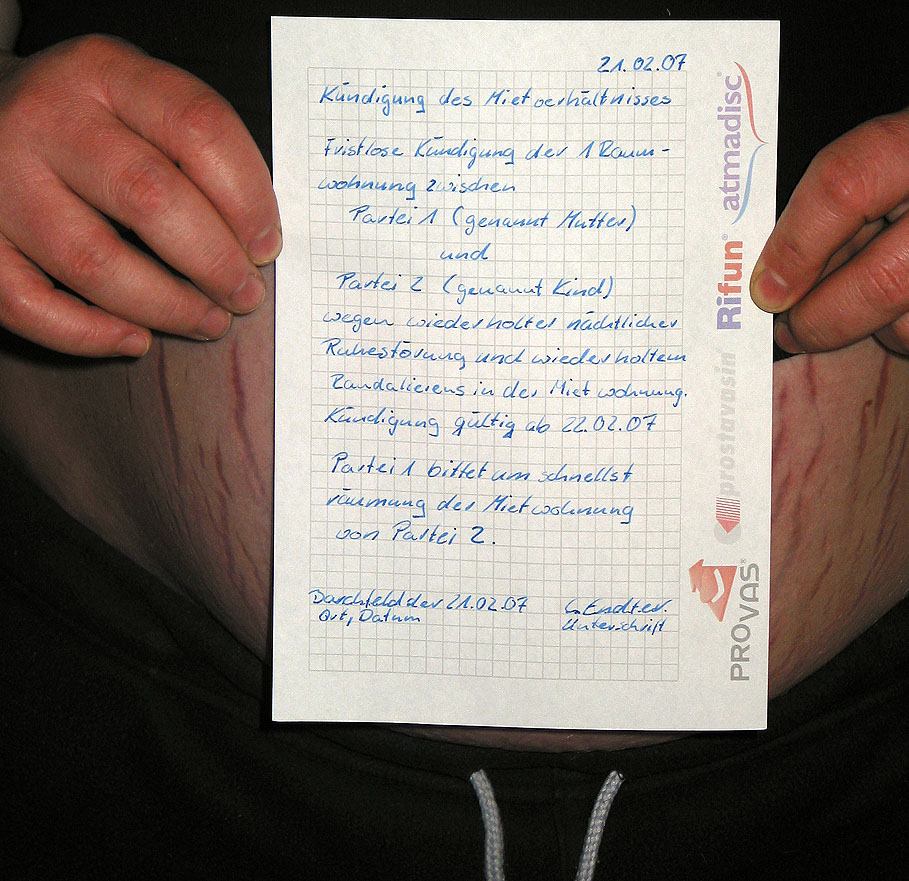 21.02.07
Kündigung des Mietverhältnisses
Fristlose Kündigung der 1 Raum-
wohnung zwischen
Partei 1 (genannt Mutter)
und
Partei 2 (genannt Kind)
wegen wiederholter nächtlicher
Ruhestörung und wiederholtem
Randalierens in der Mietwohnung.
Kündigung gültig ab 22.02.07
Partei 1 bittet um schnellst
räumung der Mietwohnung
von Partei 2.
Barchfeld der 21.02.07 C. Endter.
Ort, Datum Unterschrift
atmadisc®
Rifun®
prostavasin®
PROVAS®